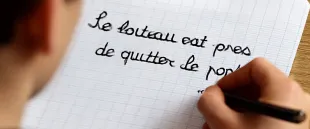 Le bateau est pres
de quitter le